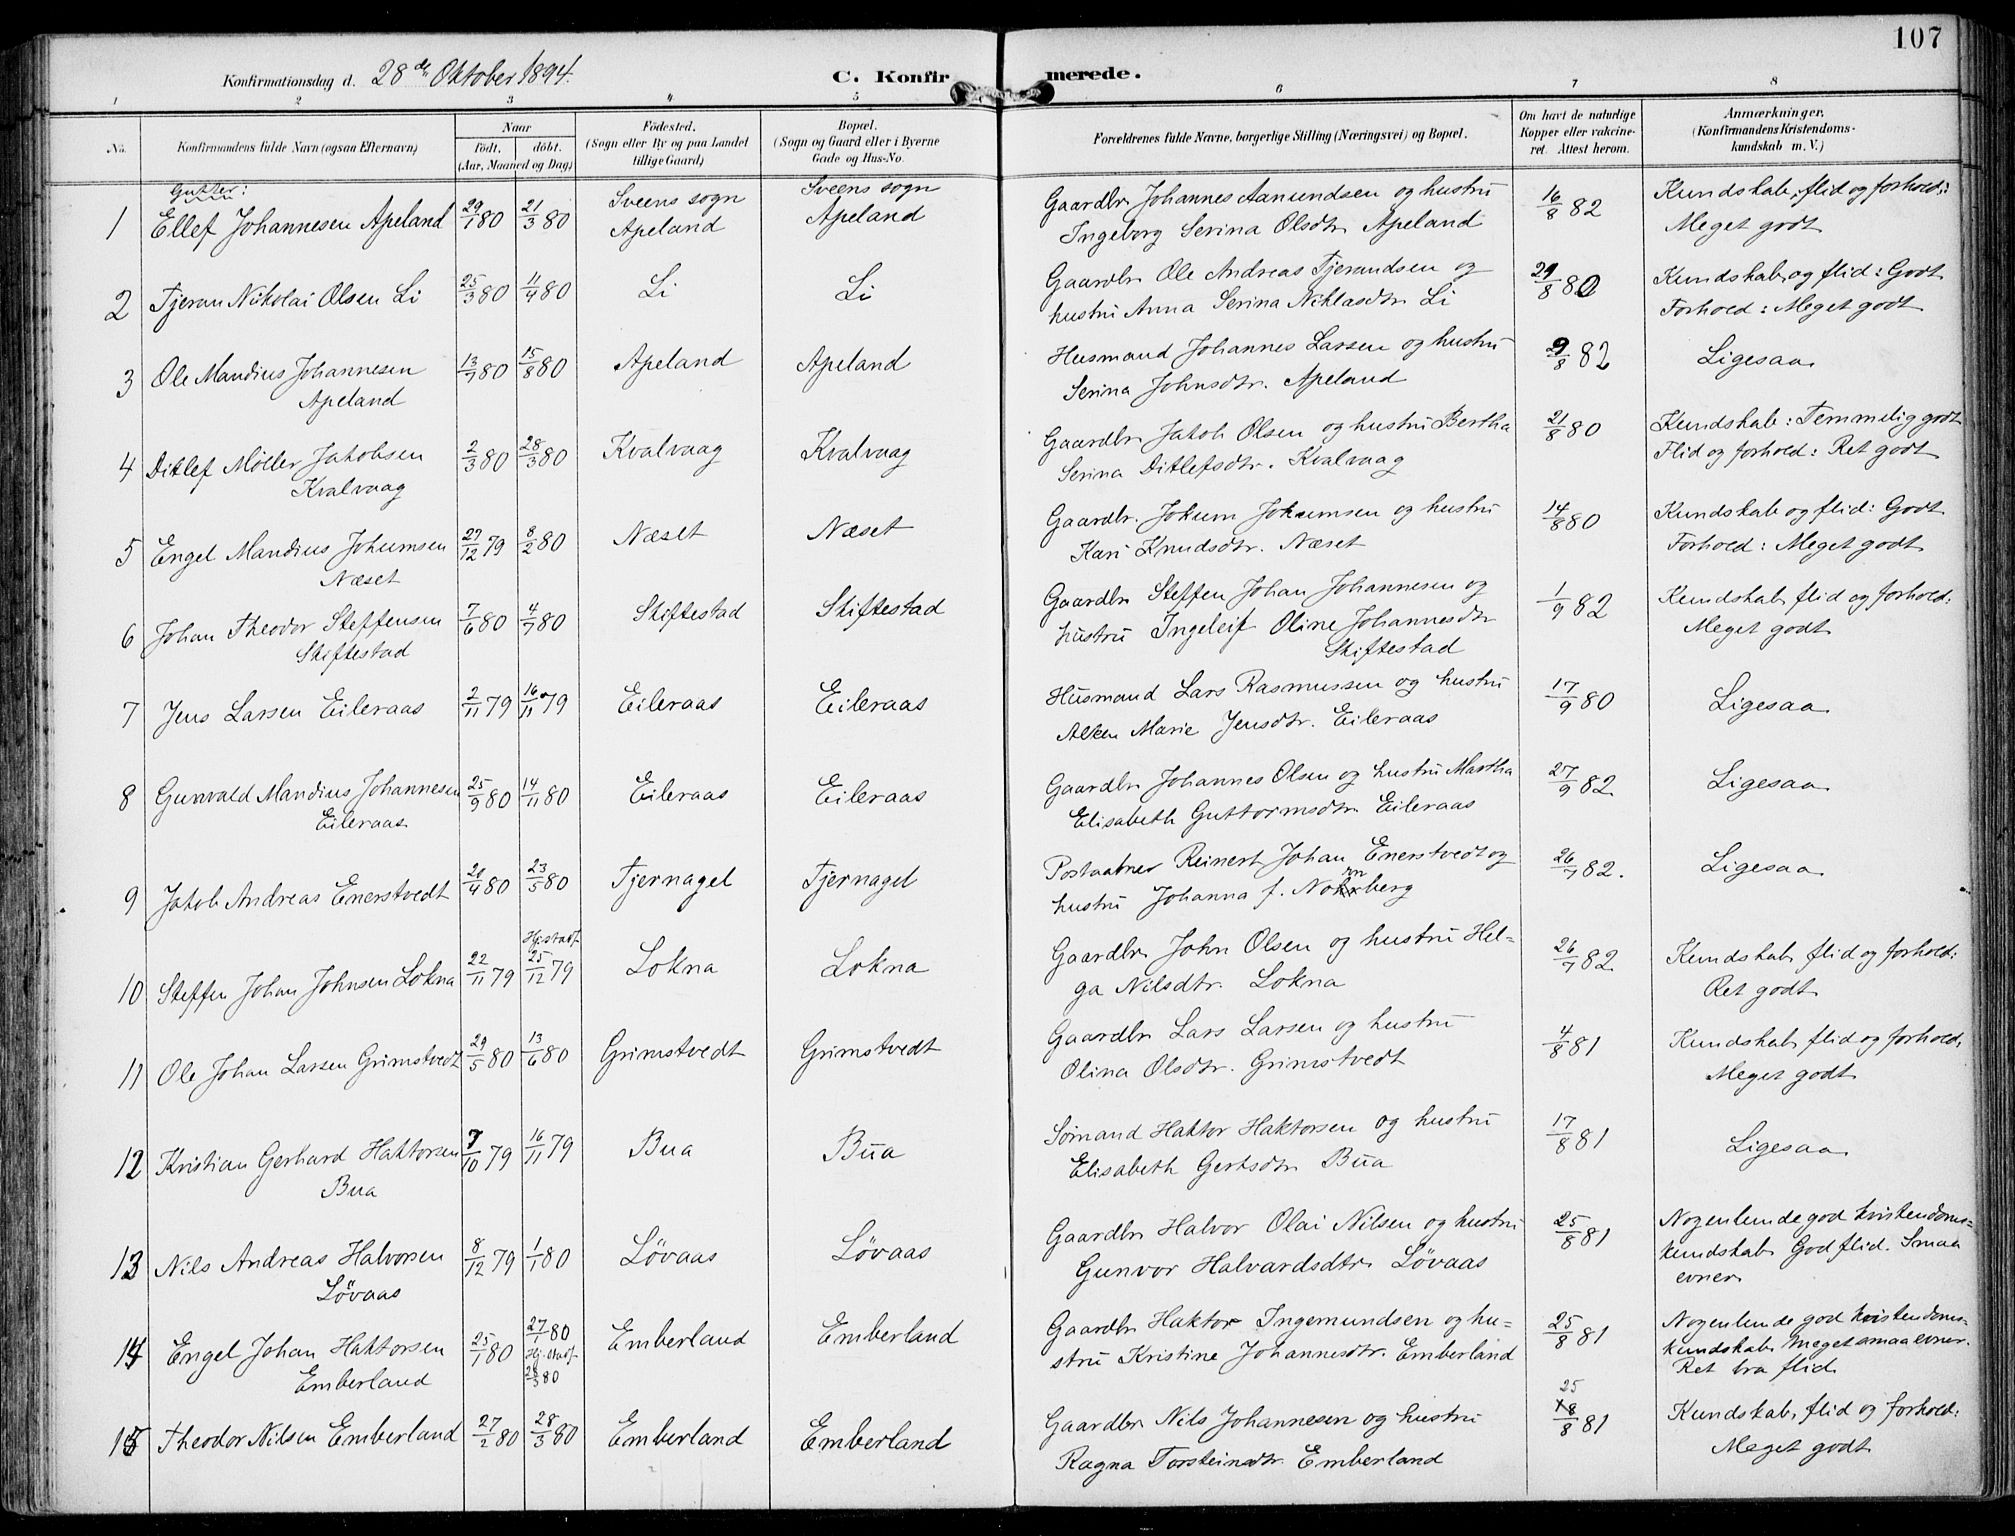 107
Konfirmationsdag d. 28de Oktober 1894.
C. Konfirmerede.
1 2 3 4 5 6 7 8
No.
Konfirmandens fulde Navn (ogsaa Efternavn)
Naar
födt, döbt.
(Aar, Maaned og Dag)
Födested.
(Sogn eller By og paa Landet
tillige Gaard)
Bopæl.
(Sogn og Gaard eller i Byerne
Gade og Hus-No.
Forældrenes fulde Navne, borgerlige Stilling (Næringsvei) og Bopæl.
Om havt de naturlige
Kopper eller vakcine-
ret. Attest herom.
Anmærkninger.
(Konfirmandens Kristendoms-
kundskab m. V.)
Gutter:
1 Ellef Johannesen Apeland 29/1 80 21/3 80 Sveens sogn Apeland Sveens sogn Apeland
Gaardbr. Johannes Aamundsen og hustru
Ingeborg Serina Olsdtr. Apeland
16/8 82
Kundskab, flid og forhold:
Meget godt
2 Tjeran Nikolai Olsen Li 25/3 80 11/4 80 Li Li
Gaardbr. Ole Andreas Tjerandsen og
hustru Anna Serina Niklasdtr. Li
29/8 80
Kundskab og flid: Godt
Forhold: Meget godt
3 Ole Mandius Johannesen
Apeland
13/7 80 15/8 80 Apeland Apeland
Husmand Johannes Larsen og hustru
Serina Johnsdtr. Apeland
29/8 82
Ligesaa
4 Ditlef Möller Jakobsen
Kvalvaag
2/3 80 28/3 80 Kvalvaag Kvalvaag
Gaardbr. Jakob Olsen og hustru Bertha
Serina Ditlefsdtr. Kvalvaag
21/8 80
Kundskab: Temmelig godt
Flid og forhold: Ret godt
5 Engel Mandius Johumsen
Næset
27/12 79 8/2 80 Næset Næset
Gaardbr. Jokum Jokumsen og hustru
Kari Knudsdtr. Næset
14/8 80
Kundskab og flid: Godt
Forhold: Meget godt
6 Johan Theodor Steffensen
Skiftestad
7/6 80 4/7 80 Skiftestad Skiftestad
Gaardbr. Steffen Johan Johannesen og
hustru Ingeleif Oline Johannesdtr
Skiftestad
1/9 82
Kundskab, flid og forhold:
Meget godt
7 Jens Larsen Eileraas 2/11 79 16/11 79 Eileraas Eileraas
Husmand Lars Rasmussen og hustru
Alken Marie Jensdtr. Eileraas
17/9 80
Ligesaa
8 Gunvald Mandius Johannesen
Eileraas
25/9 80 14/11 80 Eileraas Eileraas
Gaardbr. Johannes Olsen og hustru Martha
Elisabeth Guttormsdtr. Eileraas
27/9 82
Ligesaa
9 Jakob Andreas Enerstvedt 20/4 80 23/5 80 Tjernagel Tjernagel
Postaabner Reinert Johan Enerstvedt og
hustru Johanna f. Nornberg
26/7 82.
Ligesaa
10 Steffen Johan Johnsen Lokna 22/11 79 Hj.stadf. 25/12 79 Lokna Lokna
Gaardbr. John Olsen og hustru Hel-
ga Nilsdtr. Lokna
26/7 82
Kundskab, flid og forhold:
Ret godt
11 Ole Johan Larsen Grimstvedt 29/5 80 13/6 80 Grimstvedt Grimstvedt
Gaardbr. Lars Larsen og hustru
Olina Olsdtr. Grimstvedt
4/8 81
Kundskab, flid og forhold.
Meget godt
12 Kristian Gerhard Haktorsen
Bua
7/10 79 16/11 79 Bua Bua
Sömand Haktor Haktorsen og hustru
Elisabeth Gertsdtr. Bua
17/8 81
Ligesaa
13 Nils Andreas Halvorsen
Lövaas
8/12 79 1/1 80 Lövaas Lövaas
Gaardbr. Halvor Olai Nilsen og hustru
Gunvor Halvardsdtr. Lövaas
25/8 81
Nogenlunde god kristendoms-
kundskab. God flid. Smaa
evner
14 Engel Johan Haktorsen
Emberland
25/1 80 27/1 80 Hj. stadf. 28/3 80 Emberland Emberland
Gaardbr. Haktor Ingemundsen og hu-
stru Kristine Johannesdtr. Emberland
25/8 81
Nogenlunde god kristendoms-
kundskab. Meget smaa evner.
Ret bra flid
15 Theodor Nilsen Emberland 27/2 80 28/3 80 Emberland Emberland
Gaardbr. Nils Johannesen og hustru
Ragna Torsteinsdtr. Emberland
25/8 81
Kundskab, flid og forhold:
Meget godt